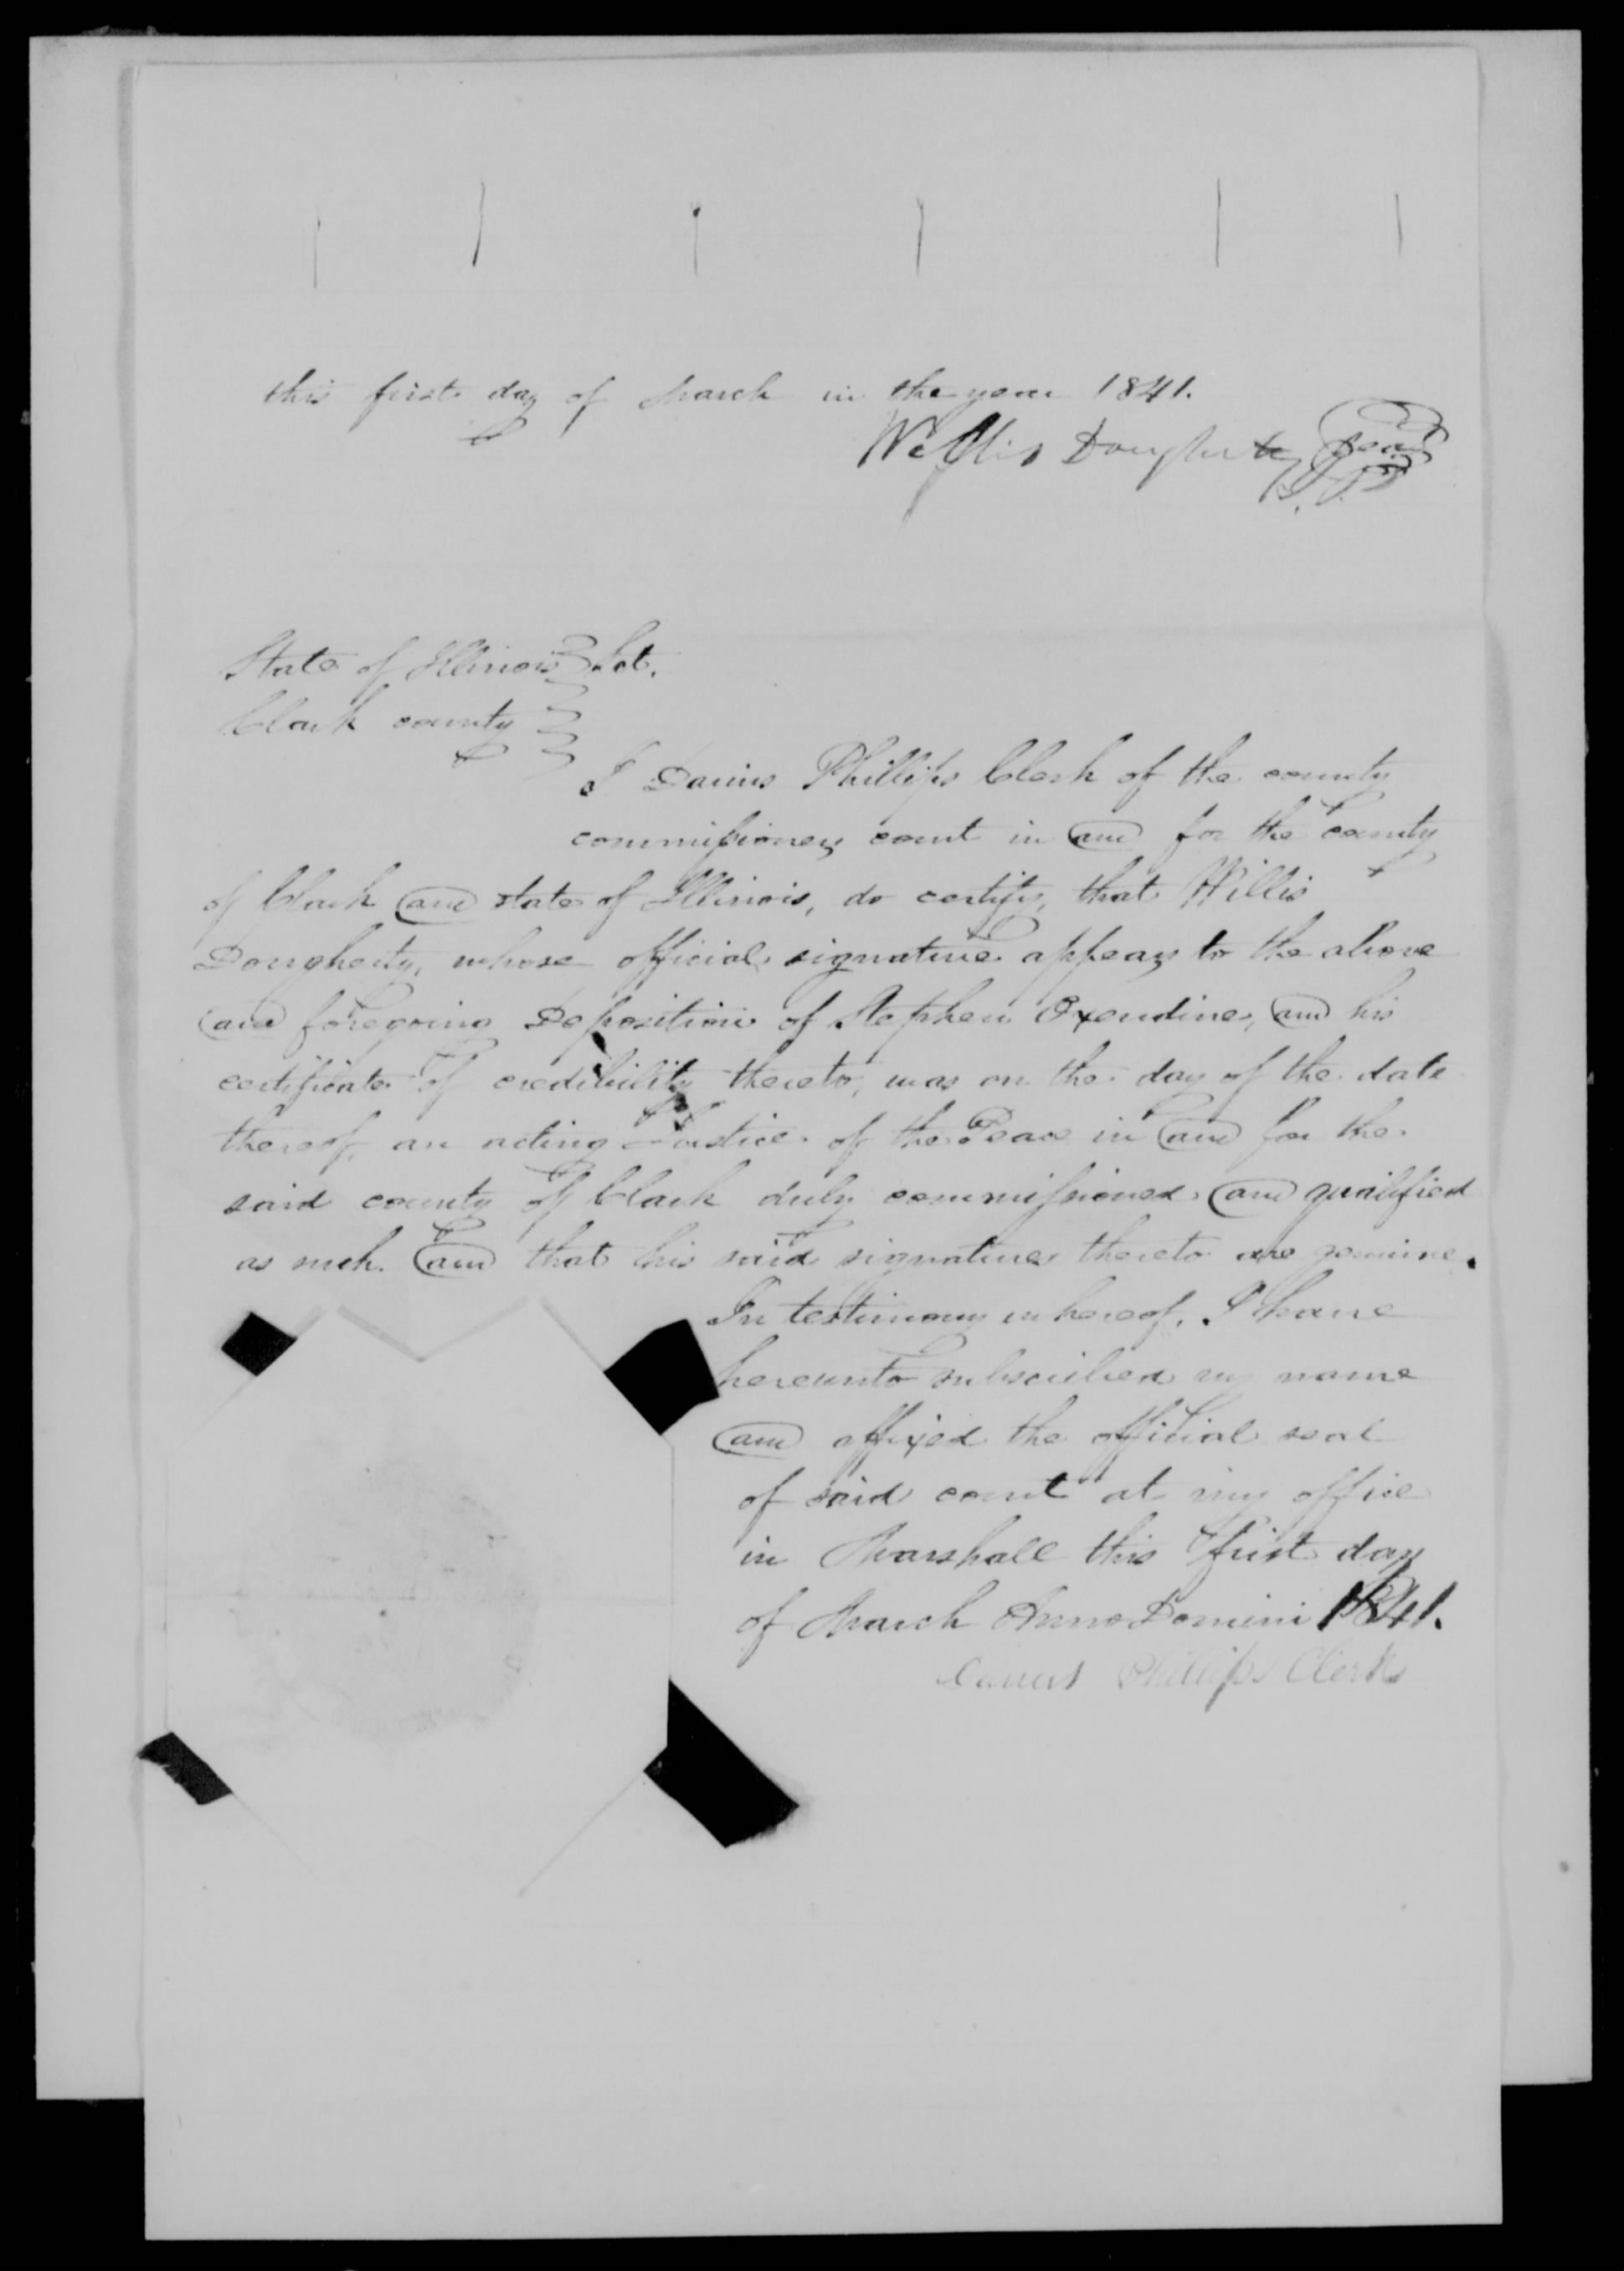 this first day of March in the year 1841.
Willis Dougherty Seal
J. P.
State of Illinois Sct.
Clark county
I Darius Phillips Clerk of the county
commissioners court in and for the county
of Clark and state of Illinois, do certify, that Willis
Dougherty, whose official signature appears to the above
and foregoing Deposition of Stephen Oxendine, and his
certificate of credibility thereto, was on the day of the date
thereof, an acting Justice of the Peace in and for the
said county of Clark duly commissioned and qualified
as such. and that his said signatures thereto are genuine.
In testimony whereof, I have
hereunto subscribed my name
and affixed the official seal
of said court at my office
in Marshall this first day
of March Anno Domini 1841.
Darius Phillips Clerk